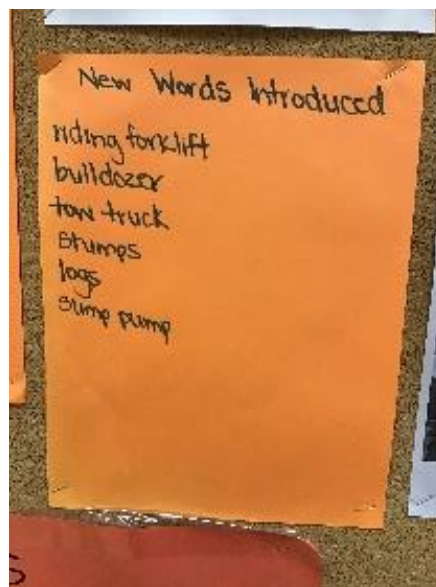 New Words Introduced
riding forklift
bulldozer
tow truck
stumps
logs
sump pump
S